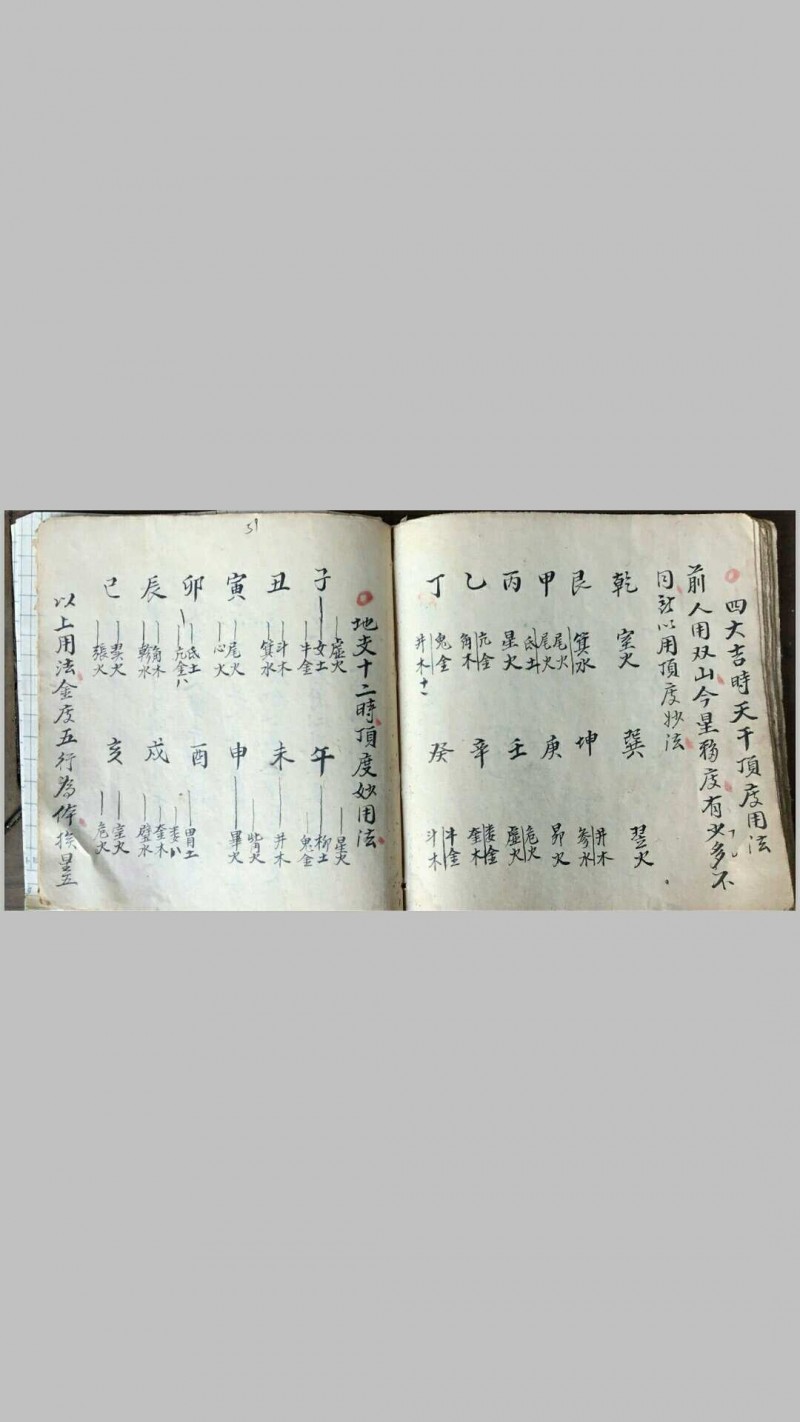 四大吉時天干頂度用法
前人用双山今星移度有少多不
同所以用頂度妙法
乾 室火 巽 翌火
艮 箕水 坤 井木 參水
甲 尾火 尾火 庚 昴火
丙 星火 氐土 壬 危火 虛火
乙 亢金 角木 辛 婁金 奎木
丁 鬼金 井木 十一 癸 牛金 斗木
地支十二時頂度妙用法
子 虛火 女土 牛金 午 星火 柳土 鬼金
丑 斗木 箕水 未 井木
寅 尾火 心火 申 觜火 畢火
卯 氐土 亢金八 酉 胃土 婁八
辰 角木 軫水 戌 奎木 壁水
巳 翌火 張火 亥 室火 危火
以上用法金度五行為体挨星五
51